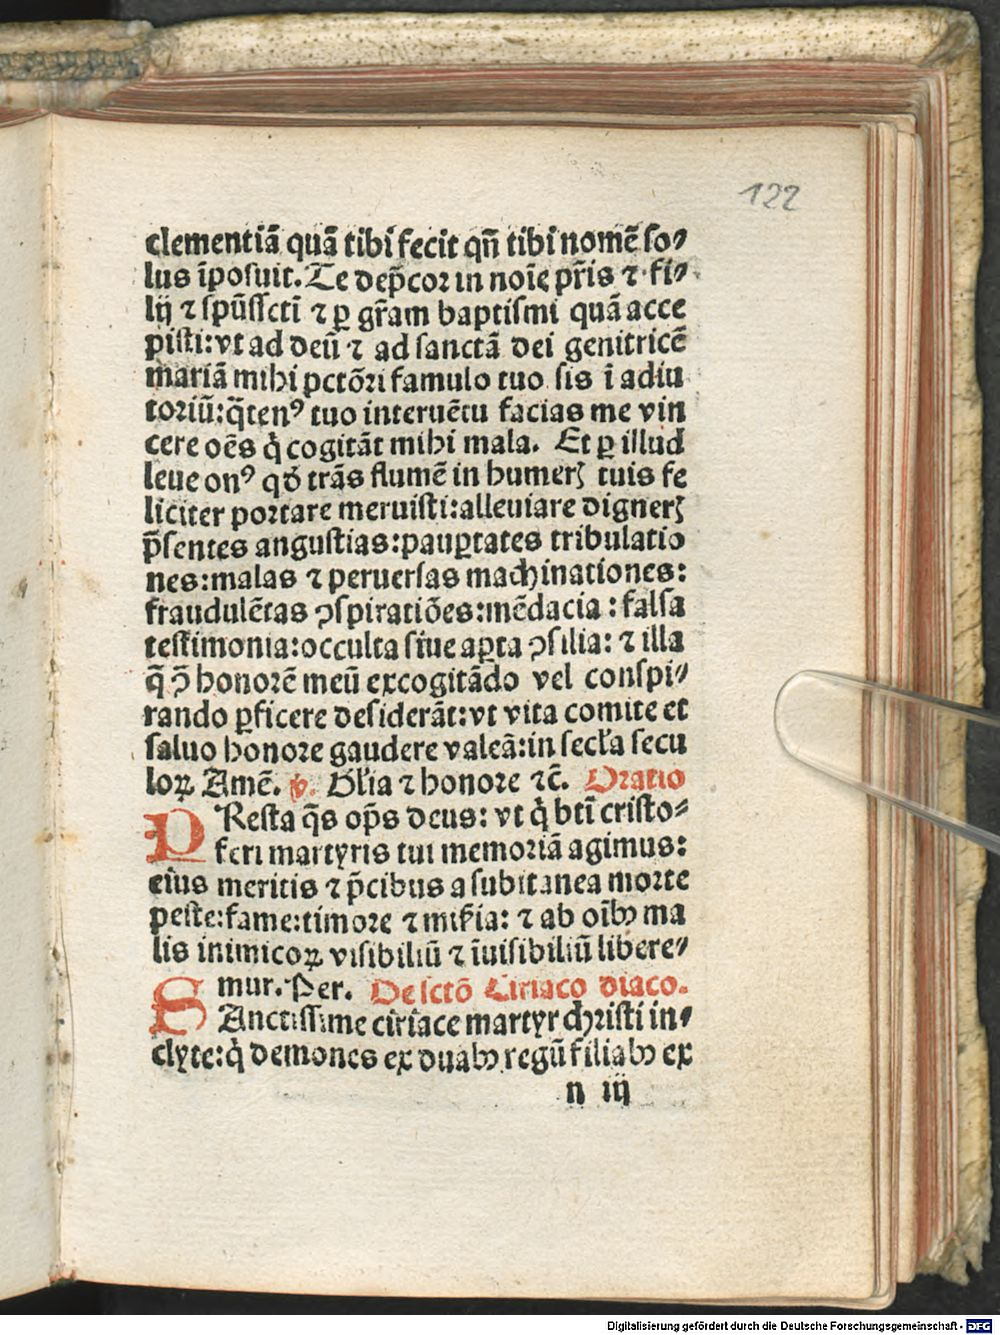 122
clementiā quā tibi fecit qn̄ tibi nomē ſo⸗
lus īpoſuit. Te dep̄cor in noīe pr̄is ⁊ fi⸗
lij ⁊ ſpūſſctī ⁊ ꝑ gr̄am baptiſmi quā acce
piſti: vt ad deū ⁊ ad ſanctā dei genitricē
mariā mihi pctōri famulo tuo ſis ī adiu
toriū: q̄tenꝰ tuo interuētu facias me vin
cere oēs q̇ cogitāt mihi mala. Et ꝑ illud
leue onꝰ qd̓ trās flumē in humerꝫ tuis fe
liciter portare meruiſti: alleuiare dignerꝫ
p̄ſentes anguſtias: pauꝑtates tribulatio
nes: malas ⁊ peruerſas machinationes:
fraudulētas ꝯſpiratiōes: mēdacia: falſa
teſtimonia: occulta ſiue aꝑta ꝯſilia: ⁊ illa
q̄ ꝯ̄ honorē meū excogitādo vel conſpi⸗
rando ꝑficere deſiderāt: vt vita comite et
ſaluo honore gaudere valeā: in ſecl̓a ſecu
loꝝ. Amē. ℣. Gl̓ia ⁊ honore ⁊c̄. Oratio
PReſta q̄s op̄s deus: vt q̇ btī criſto⸗
feri martyris tui memoriā agimus:
eius meritis ⁊ p̄cibus a ſubitanea morte
peſte: fame: timore ⁊ mik̄ia: ⁊ ab oībꝫ ma
lis inimicoꝝ viſibiliū ⁊ īuiſibiliū libere⸗
mur. Per. De ſctō Ciriaco diaco.
SAnctiſſime ciriace martyr chriſti in⸗
clyte: q̇ demones ex duabꝫ regū filiabꝫ ex
n iij
Digitalisierung gefördert durch die Deutsche Forschungsgemeinschaft - DFG